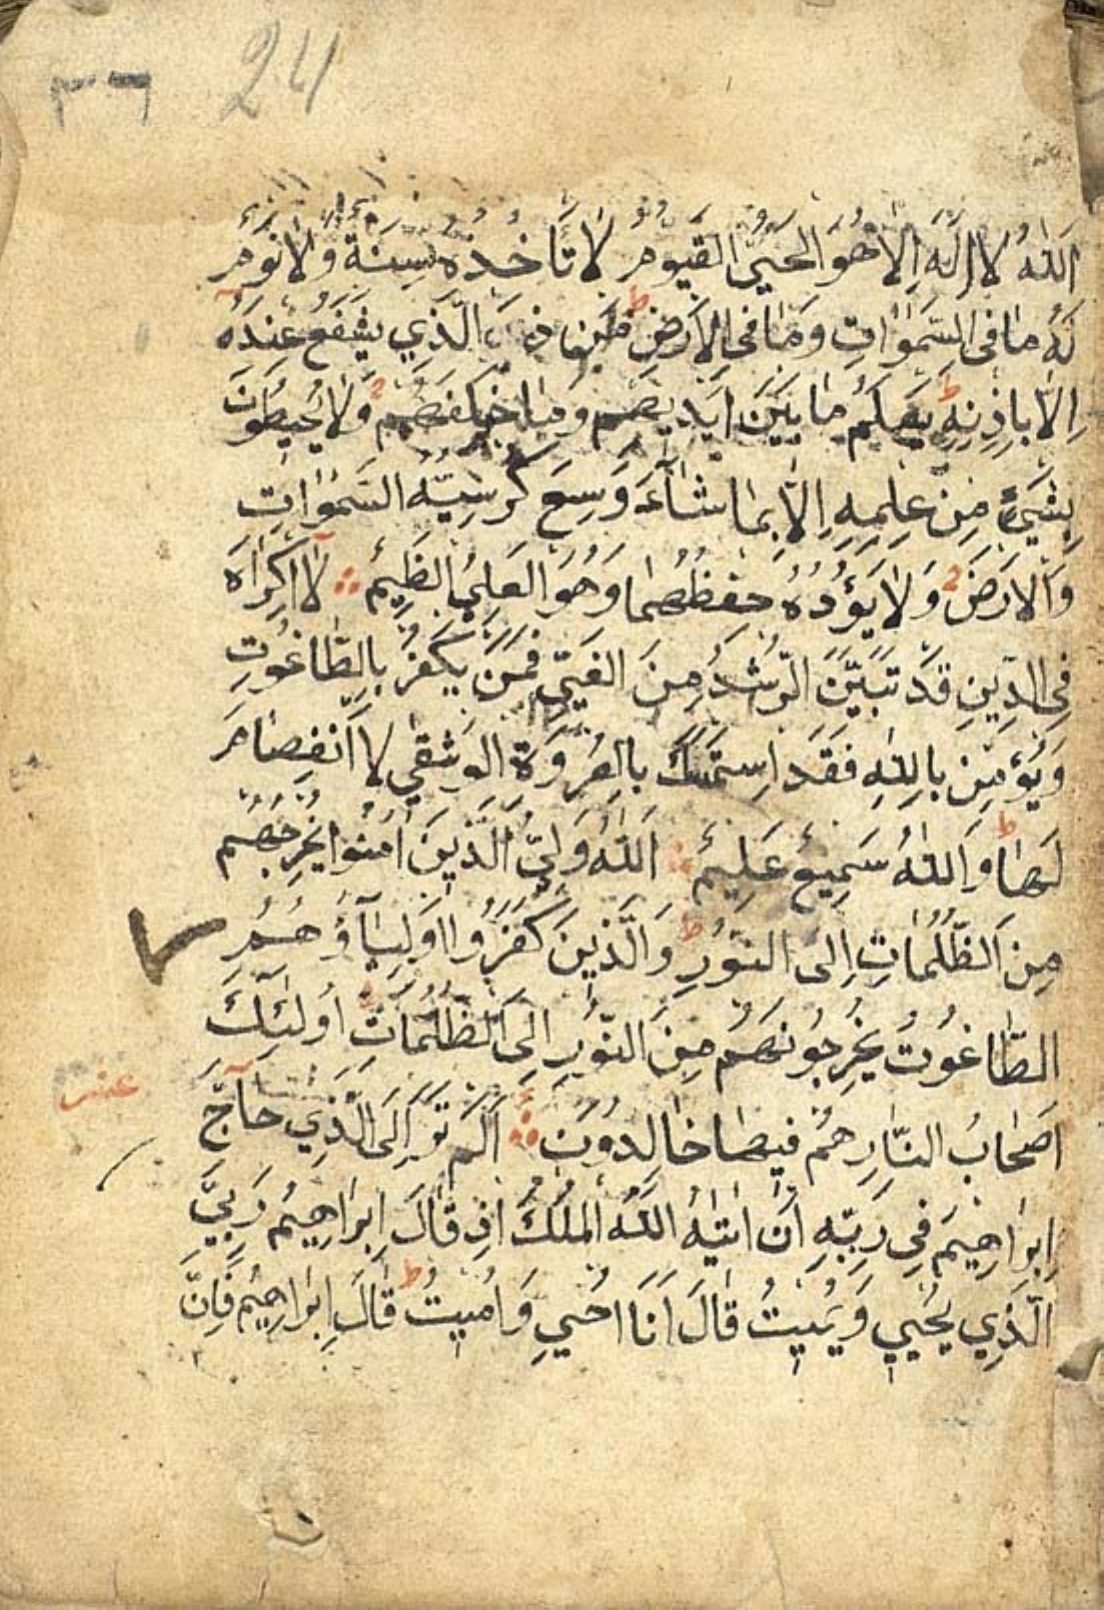 ٣٦ 24
اَللّٰهُ لَا اِلٰهَ اِلَّا هُوَ الْحَيُّ الْقَيُّومُ لَا تَأْخُذُهُ سِنَةٌ وَلَا نَوْمٌ
لَهُ مَا فِي السَّمٰوَاتِ وَمَا فِي الْاَرْضِ ط مَنْ ذَا الَّذِي يَشْفَعُ عِنْدَهُ
اِلَّا بِاِذْنِهِ ط يَعْلَمُ مَا بَيْنَ اَيْدِيهِمْ وَمَا خَلْفَهُمْ وَلَا يُحِيطُونَ
بِشَيْءٍ مِنْ عِلْمِهِ اِلَّا بِمَا شَآءَ وَسِعَ كُرْسِيُّهُ السَّمٰوَاتِ
وَالْاَرْضَ وَلَا يَؤُدُهُ حِفْظُهُمَا وَهُوَ الْعَلِيُّ الظِيمُ لَا اِكْرَاهَ
فِي الدِّينِ قَدْ تَبَيَّنَ الرُّشْدُ مِنَ الْغَيِّ فَمَنْ يَكْفُرْ بِالطَّاغُوتِ
وَيُؤْمِنْ بِاللّٰهِ فَقَدِ اسْتَمْسَكَ بِالْعُرْوَةِ الْوُثْقٰي لَا انْفِصَامَ
لَهَا ط وَاللّٰهُ سَمِيعٌ عَلِيمٌ اَللّٰهُ وَلِيُّ الَّذِينَ اٰمَنُوا يُخْرِجُهُمْ
مِنَ الظُّلُمَاتِ اِلَى النُّورِ ط وَالَّذِينَ كَفَرُوا اَوْلِيَآؤُهُمُ
الطَّاغُوتُ يُخْرِجُونَهُمْ مِنَ النُّورِ اِلَى الظُّلُمَاتِ اُولٰئِكَ
عشر
اَصْحَابُ النَّارِ هُمْ فِيهَا خَالِدُونَ اَلَمْ تَرَ اِلَى الَّذِي حَآجَّ
اِبْرَاهِيمَ فِي رَبِّهِ اَنْ اٰتٰيهُ اللّٰهُ الْمُلْكَ اِذْ قَالَ اِبْرَاهِيمُ رَبِّيَ
الَّذِي يُحْيِي وَيُمِيتُ قَالَ اَنَا اُحْيِي وَاُمِيتُ ط قَالَ اِبْرَاهِيمُ فَاِنَّ